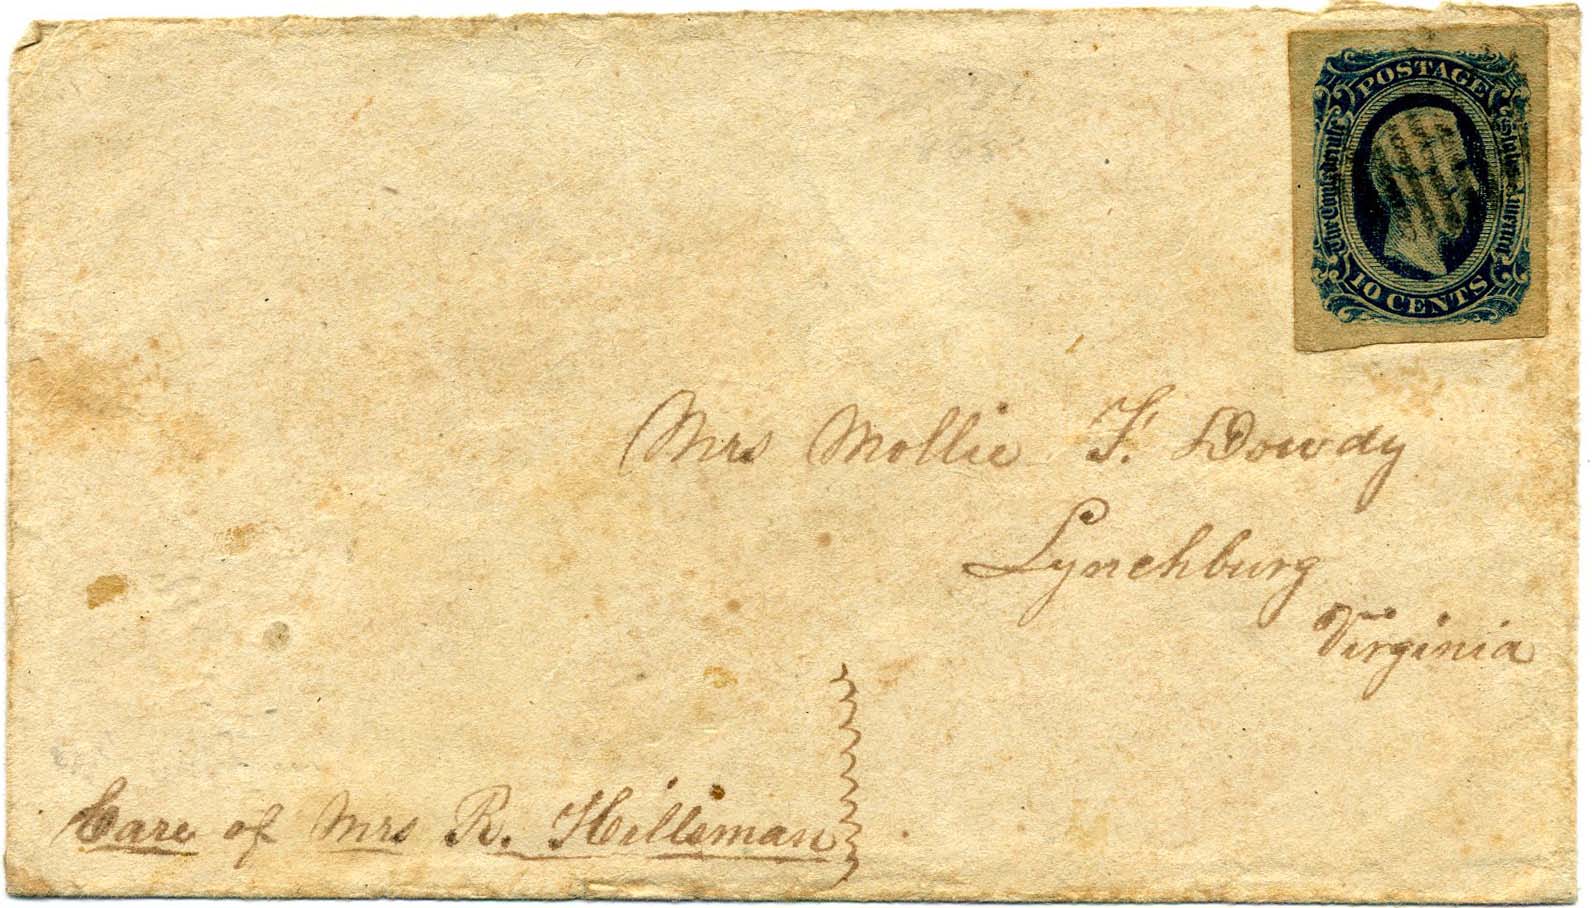 POSTAGE
The Confederate States America
10 CENTS
Mrs Mollie F. Dowdy
Lynchburg
Virginia
Care of Mrs R. Hillsman